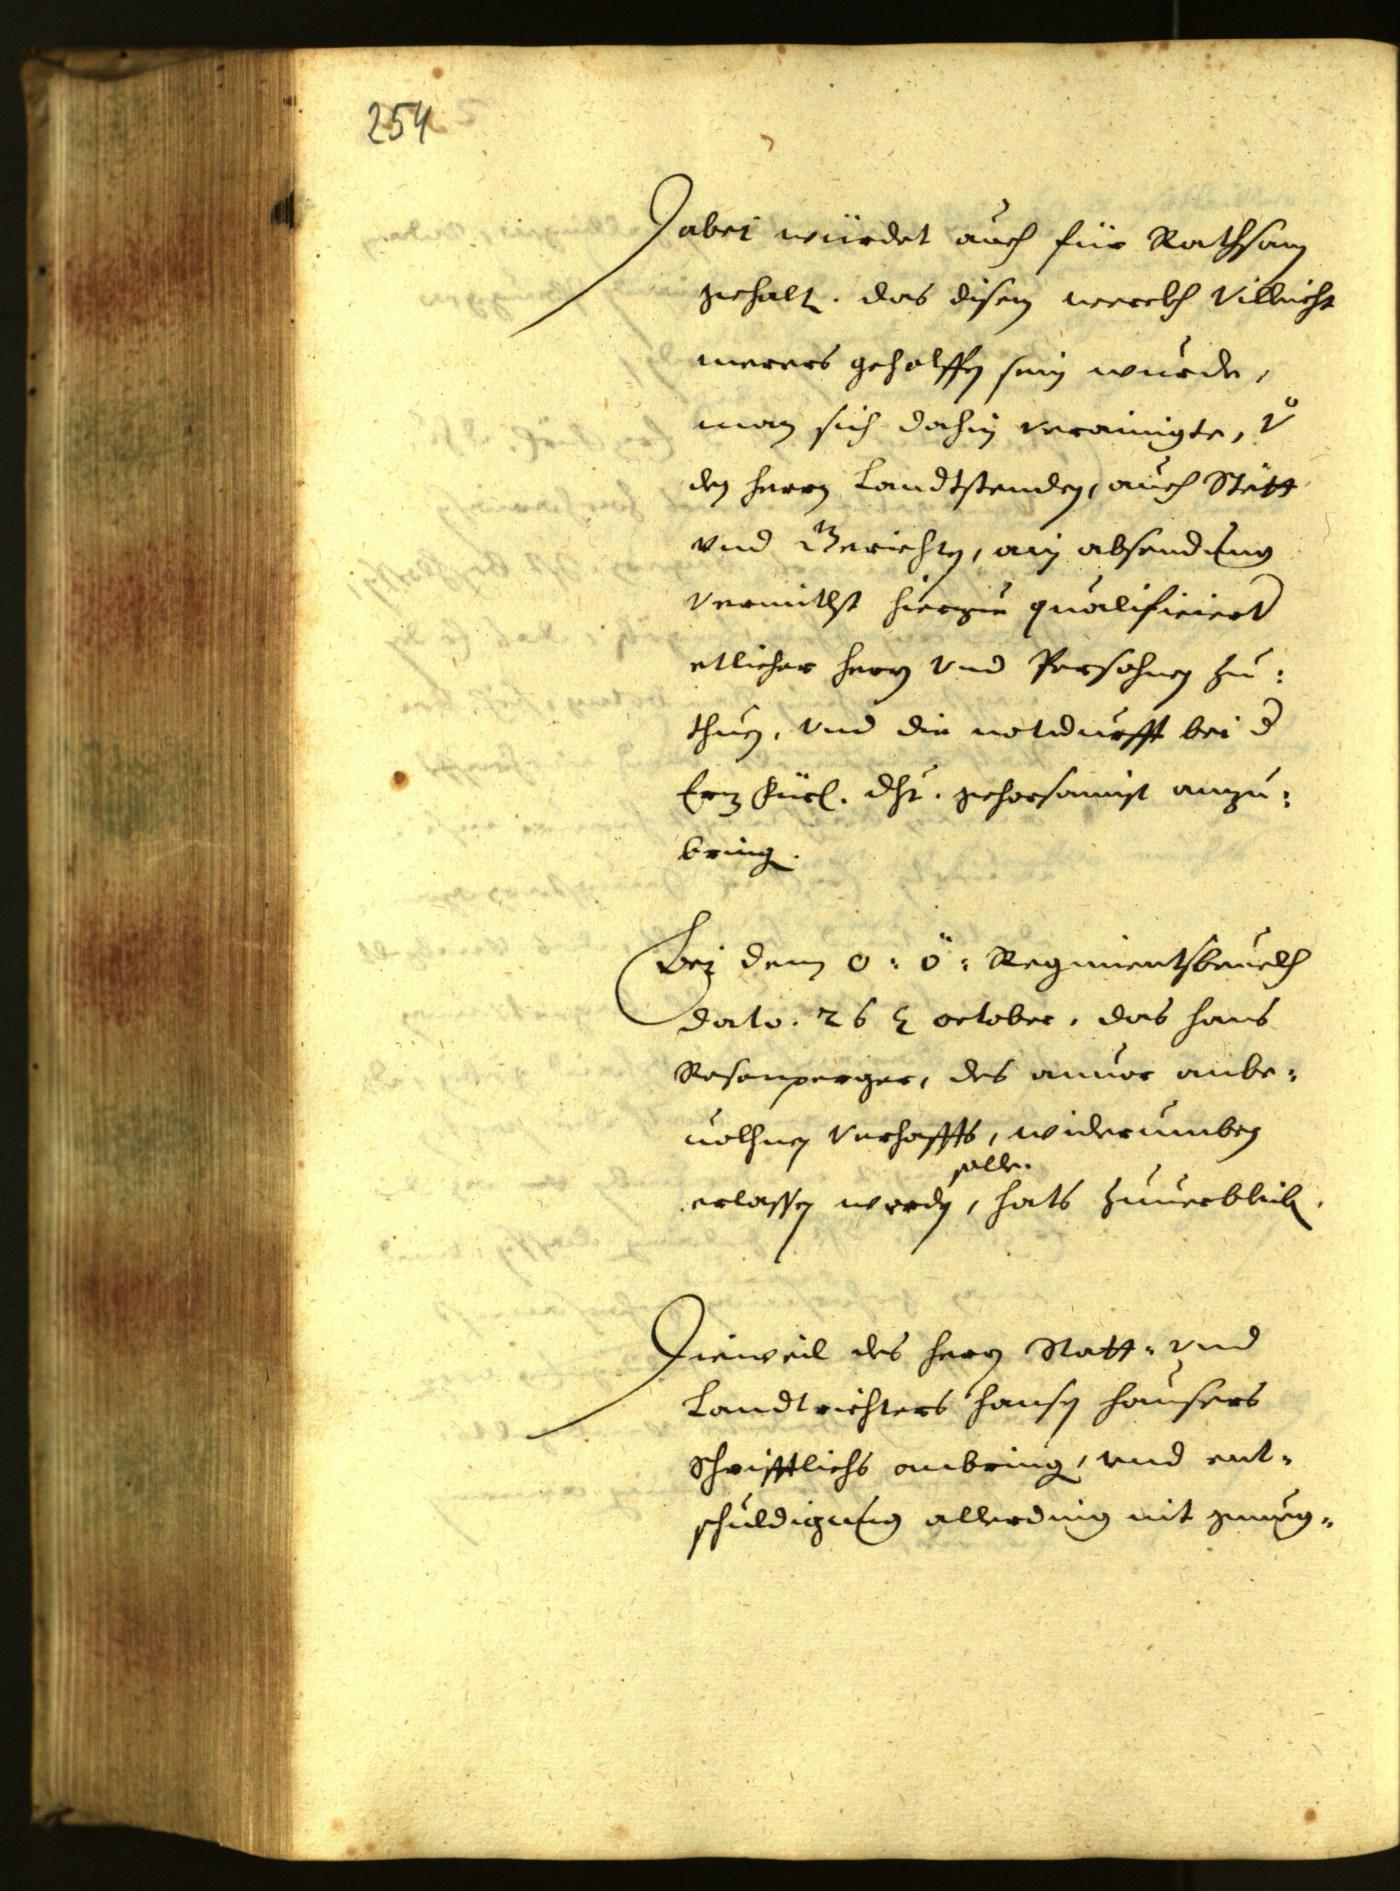 254
Dabei würdet auch für Rathsam
gehalt. das disem werckh Villeicht
merers geholffen sein wurde,
man sich dahin verainigte, V̊
den herrn Landtstenden, auch Stätt
vnd Gerichten, ain absendung
vermitlst hierzue qualificiert
etlicher herrn vnd Persohnen zu:
thun, vnd die notdurfft bei d
Erz Fürl. Dht. gehorsamist anzu:
bring.
Bei dem O: Ö: Regimentsbeuelch
dato. 26 october, das hans
Rosenperger, des anuor anbe:
uolhnen Verhaffts, widerumben
solle.
erlassen werden, hats zuuerbleib.
Dieweil des herrn Statt- vnd
Landtrichters hansen hausers
Schrifftlichs anbring, vnd ent-
schuldigung allerding nit genueg-